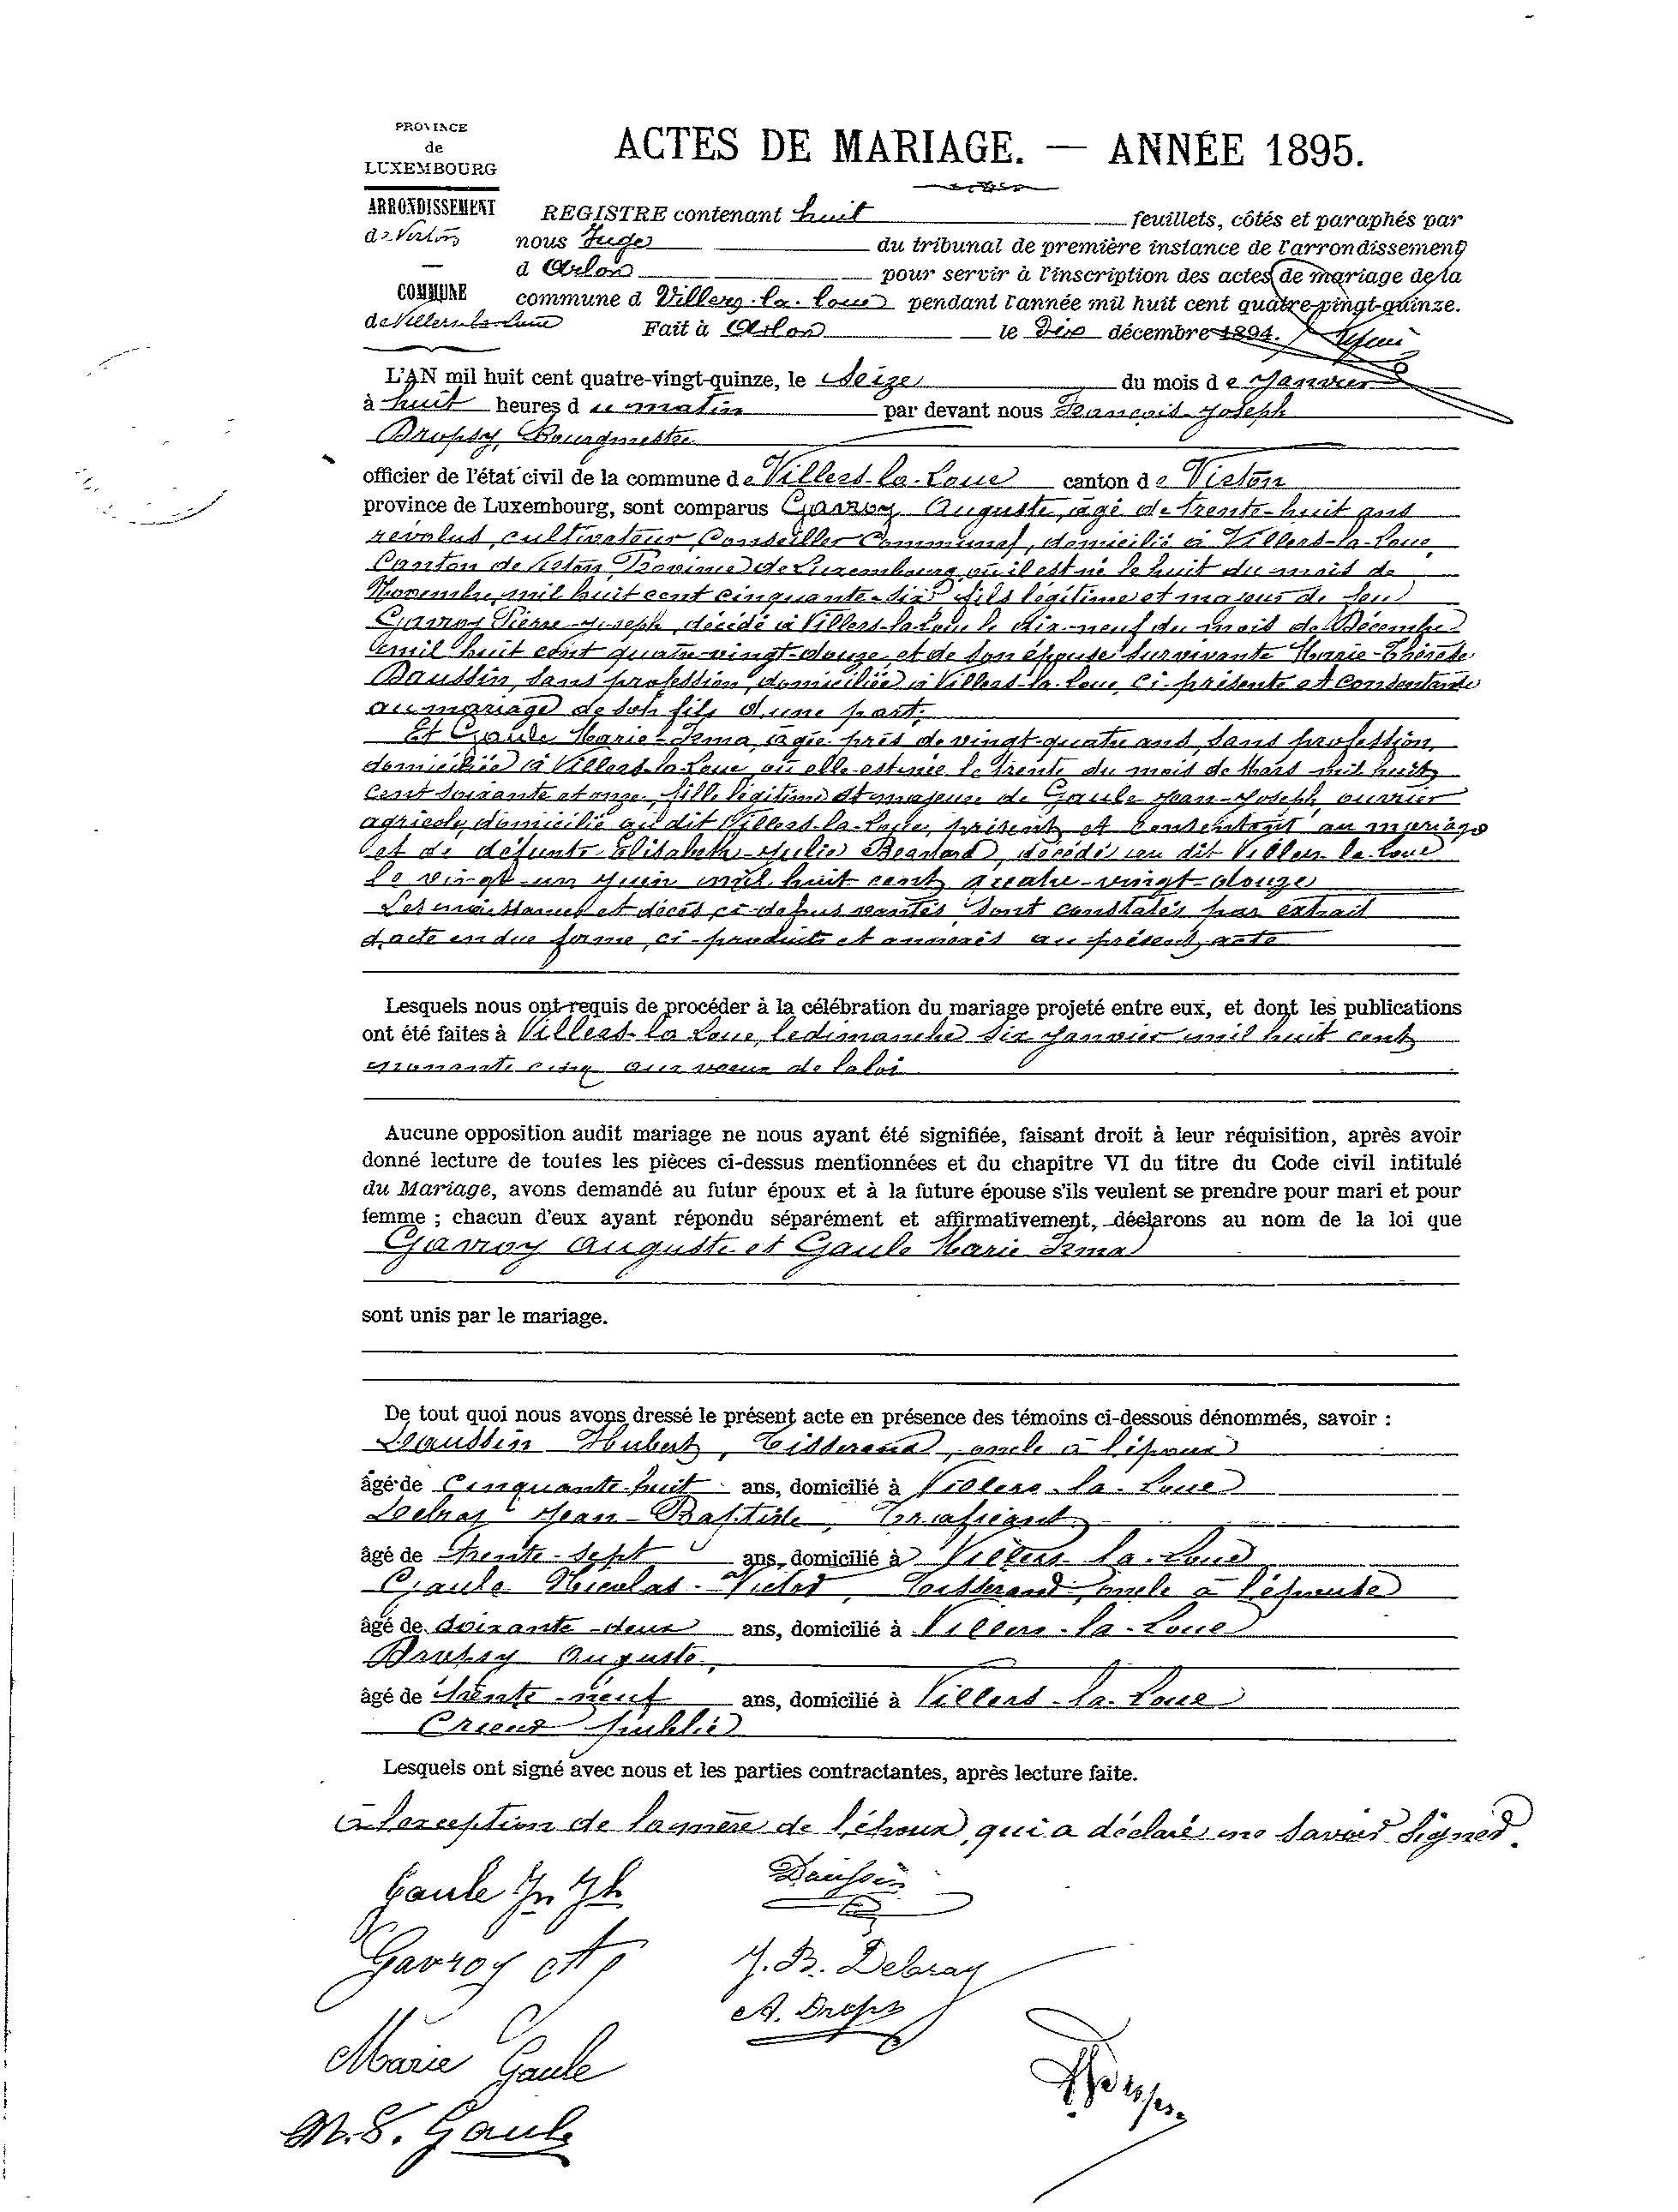 PROVINCE
de
LUXEMBOURG
ACTES DE MARIAGE. — ANNÉE 1895.
ARRONDISSEMENT
de Virton
COMMUNE
de Villers-la-Loue
REGISTRE contenant huit feuillets, côtés et paraphés par
nous Juge du tribunal de première instance de l'arrondissement
d Arlon pour servir à l'inscription des actes de mariage de la
commune d Villers-la-Loue pendant l'année mil huit cent quatre-vingt-quinze.
Fait à Arlon le Dix décembre 1894.
L'AN mil huit cent quatre-vingt-quinze, le Seize du mois de Janvier
à huit heures du matin par devant nous François-Joseph
Dropsy, Bourgmestre
officier de l'état civil de la commune de Villers-la-Loue canton de Virton
province de Luxembourg, sont comparus Gavroy Auguste, âgé de trente-huit ans
révolus, cultivateur, Conseiller Communal, domicilié à Villers-la-Loue,
Canton de Virton, Province de Luxembourg, où il est né le huit du mois de
Novembre mil huit cent cinquante-six, fils légitime et majeur de feu
Gavroy Pierre-Joseph, décédé à Villers-la-Loue le dix-neuf du mois de Décembre
mil huit cent quatre-vingt-douze et de son épouse survivante Marie-Thérèse
Daussin, sans profession, domiciliée à Villers-la-Loue, ci-présente et consentante
au mariage de son fils d'une part;
Et Gaule Marie-Irma, âgée près de vingt-quatre ans, sans profession,
domiciliée à Villers-la-Loue, où elle est née le trente du mois de Mars mil huit
cent soixante et onze, fille légitime et majeure de Gaule Jean-Joseph, ouvrier
agricole, domicilié au dit Villers-la-Loue, présent et consentant au mariage
et de défunte Elisabeth-Julie, décédé au dit Villers-la-Loue
le vingt-un Juin mil huit cent quatre-vingt-douze
Les naissances et décès ci-dessus vantés sont constatés par extrait
d'acte en due forme, ci-produits et annexés au présent acte
Lesquels nous ont requis de procéder à la célébration du mariage projeté entre eux, et dont les publications
ont été faites à Villers-la-Loue, le dimanche six Janvier mil huit cent
nonante cinq aux voeux de la loi
Aucune opposition audit mariage ne nous ayant été signifiée, faisant droit à leur réquisition, après avoir
donné lecture de toutes les pièces ci-dessus mentionnées et du chapitre VI du titre du Code civil intitulé
du Mariage, avons demandé au futur époux et à la future épouse s'ils veulent se prendre pour mari et pour
femme ; chacun d'eux ayant répondu séparément et affirmativement, déclarons au nom de la loi que
Gavroy Auguste et Gaule Marie Irma
sont unis par le mariage.
De tout quoi nous avons dressé le présent acte en présence des témoins ci-dessous dénommés, savoir :
Daussin Hubert, Tisserand, oncle à l'époux
âgé de Cinquante-huit ans, domicilié à Villers-la-Loue
Debray Jean-Baptiste, Trafiquant
âgé de trente-sept ans, domicilié à Villers-la-Loue
Gaule Nicolas-Victor, Tisserand, oncle à l'épouse
âgé de soixante-deux ans, domicilié à Villers-la-Loue
Dropsy Auguste,
âgé de trente-neuf ans, domicilié à Villers-la-Loue
Crieur public
Lesquels ont signé avec nous et les parties contractantes, après lecture faite.
à l'exception de la mère de l'époux, qui a déclaré ne savoir signer.
Gaule Jn Jh
Daussin
Gavroy Ate
J. B. Debray
A. Dropsy
Marie Gaule
Dropsy
Gaule